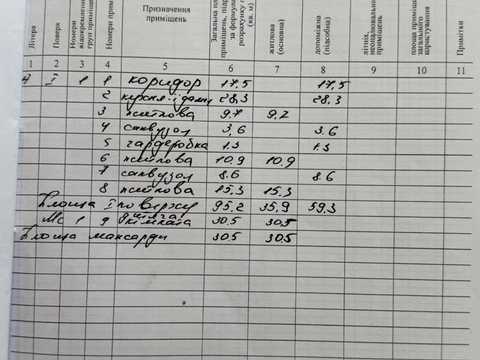 Літера
Поверх
Номери відокремлених груп приміщень
Номери приміщень
Призначення приміщень
Загальна площа приміщень, за формулою розрахунку (кв. м)
житлова (основна)
допоміжна (підсобна)
літніх, неопалювальних приміщень
площа приміщень загального користування
Примітки
1 2 3 4 5 6 7 8 9 10 11
А I 1 1 коридор 17,5 17,5
2 кухня-їдальня 28,3 28,3
3 житлова 9.7 9.7
4 санвузол 3,6 3.6
5 гардеробна 1.3 1.3
6 житлова 10.9 10.9
7 санвузол 8.6 8.6
8 житлова 15.3 15.3
Площа I поверху 95,2 35,9 59,3
М. 1 9 житлова кімната 30.5 30.5
Площа мансарди 30.5 30.5